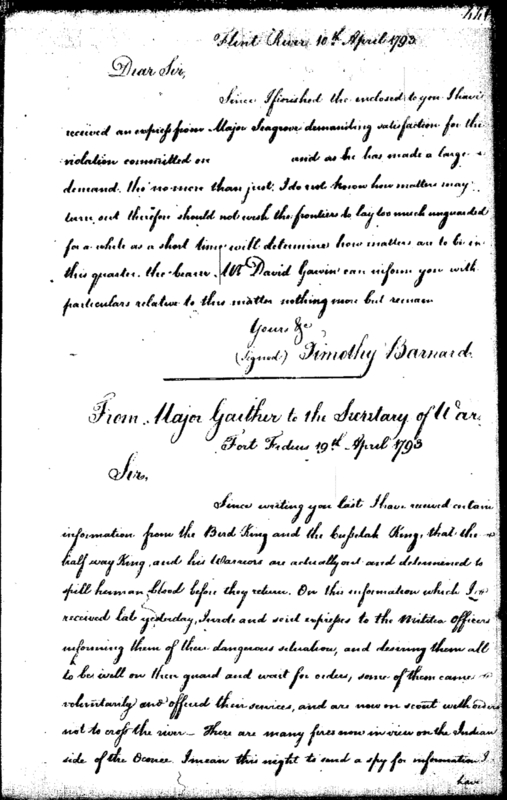 Flint River 10th April 1793
Dear Sir,
Since I finished the enclosed to you I have
received an express from Major Seagrove demanding satisfaction for the
violation committed on and as he has made a large
demand. tho' no more than just. I do not know how matters may
turn out therefore should not wish the frontiers to lay too much unguarded
for a while as a short time will determine how matters are to be in
this quarter. the bearer Mr David Garvin can inform you with
particulars relative to this matter nothing more but remain
Yours &c
(signed) Timothy Barnard.
From Major Gaither to the Secretary of War
Fort Fidius 19th April 1793
Sir,
Since writing you last I have received certain
information from the Bird King and the Cussetah King, that the
half way King, and his Warriors are actually out and determined to
spill human blood before they return. On this information which I
received late yesterday, I wrote and sent expresses to the Militia Officers
informing them of their dangerous situation, and desiring them all
to be well on their guard and wait for orders, some of them came
voluntarily and offered their services, and are now on scout with orders
not to cross the river — There are many fires now in view on the Indian
side of the Oconee. I mean this night to send a spy for information I
have